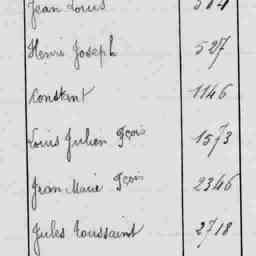 Jean Louis
Henri Joseph 527
Constant 1146
Louis Julien Fçois 1573
Jean Marie Fçois 2346
Jules Toussaint 2718